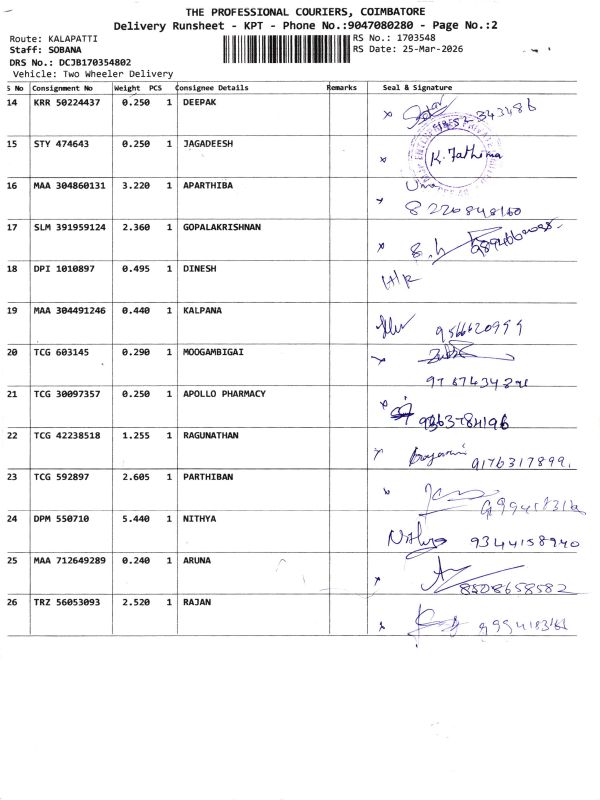 THE PROFESSIONAL COURIERS, COIMBATORE
Delivery Runsheet - KPT - Phone No.:9047080280 - Page No.:2
Route: KALAPATTI RS No.: 1703548
Staff: SOBANA RS Date: 25-Mar-2026
DRS No.: DCJB170354802
Vehicle: Two Wheeler Delivery
S No Consignment No Weight PCS Consignee Details Remarks Seal & Signature
14 KRR 50224437 0.250 1 DEEPAK
15 STY 474643 0.250 1 JAGADEESH K. Fathima
16 MAA 304860131 3.220 1 APARTHIBA
17 SLM 391959124 2.360 1 GOPALAKRISHNAN
18 DPI 1010897 0.495 1 DINESH
19 MAA 304491246 0.440 1 KALPANA 9566620999
20 TCG 603145 0.290 1 MOOGAMBIGAI
21 TCG 30097357 0.250 1 APOLLO PHARMACY
22 TCG 42238518 1.255 1 RAGUNATHAN 9176317899
23 TCG 592897 2.605 1 PARTHIBAN
24 DPM 550710 5.440 1 NITHYA Nithya 9344158940
25 MAA 712649289 0.240 1 ARUNA 8508658582
26 TRZ 56053093 2.520 1 RAJAN